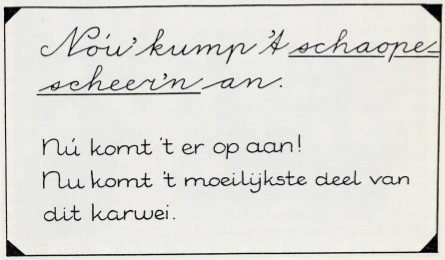 Nóu' kump 't schaope-
scheer'n an.
Nú komt 't er op aan!
Nu komt 't moeilijkste deel van
dit karwei.